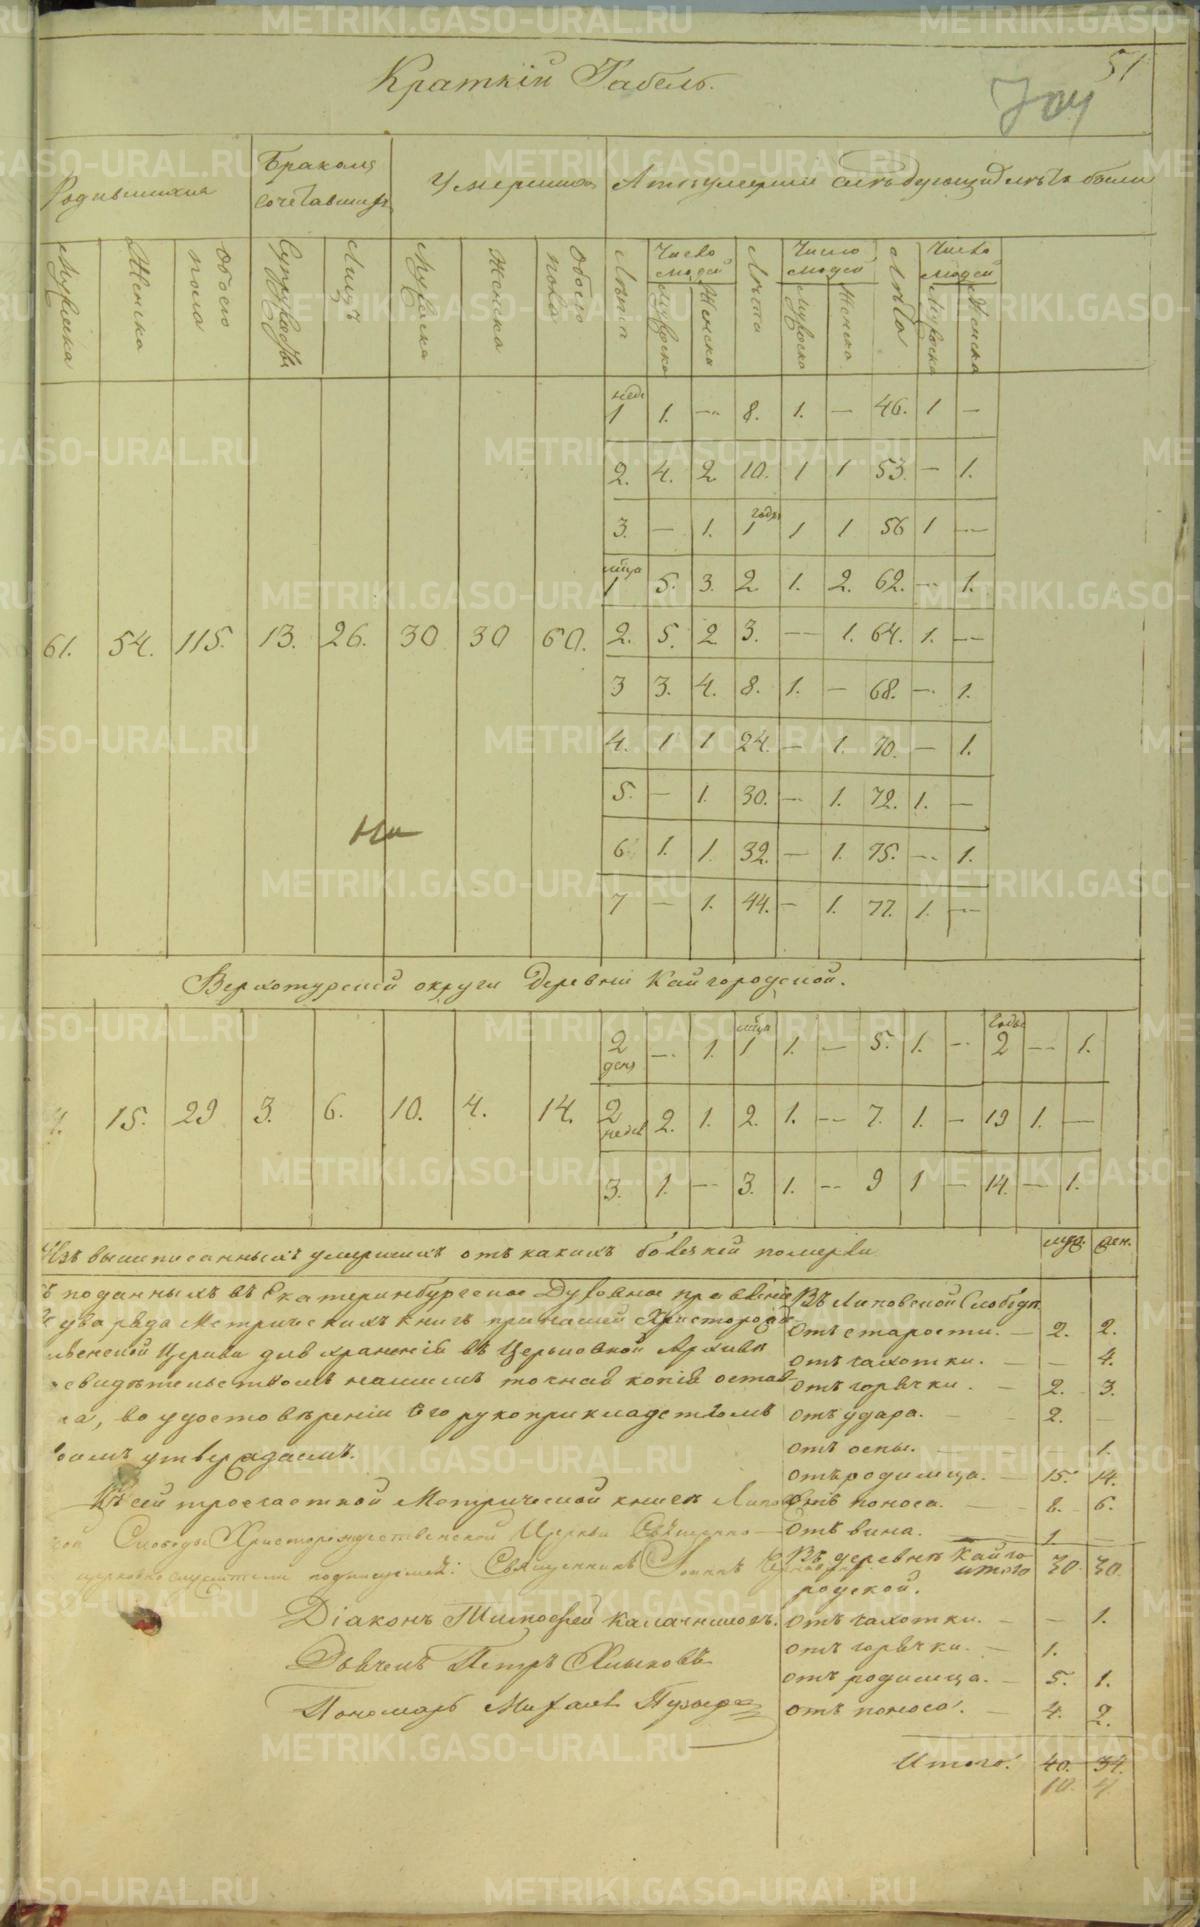 51
Краткій Табель.
704
Родившихся
Бракомъ
сочетавшихся
Умершихъ
А тѣ умершіи слѣдующихъ лѣтъ были
Мужска Женска Обоего пола Супружествъ Лицъ Мужска Женска Обоего пола Лѣта Число людей Мужска Женска Лѣта Число людей Мужска Женска Лѣта Число людей Мужска Женска
нед.
1 1. — 8. 1. — 46. 1 —
2. 4. 2 10. 1 1 53. — 1.
годъ
3. — 1. 1 1 1 56 1 —
м҃ца
1 5. 3. 2 1. 2. 62. — 1.
61. 54. 115. 13. 26. 30 30 60. 2. 5. 2 3. — 1. 64. 1. —
3 3. 4. 8. 1. — 68. — 1.
4. 1 1 24. — 1. 70. — 1.
5. — 1. 30. — 1. 72. 1. —
6 1. 1. 32. — 1. 75. — 1.
7 — 1. 44. — 1. 77. 1. —
Верхотурской округи Деревни Кайгородской.
м҃ца годы
2 — 1. 1 1. — 5. 1. — 2 — 1.
ден
15. 29 3. 6. 10. 4. 14. 2 2. 1. 2. 1. — 7. 1. — 19 1. —
недел
3. 1. — 3. 1. — 9 1 — 14. — 1.
Изъ вышписанныхъ умершихъ отъ какихъ болѣзней померли муж. жен.
поданныхъ въ Екатеринбургское Духовное правленіе
два рода Метрическихъ книгъ при нашей Христорож
Церкви для храненія въ Церьковной Архивѣ
свидѣтельствомъ нашимъ точная копія остав
во удостовѣреніи Его рукоприкладствомъ
утверждаемъ.
Къ сей троечастной Метрической книгѣ Липов
Слободы Христорождественской Церкви Священно
церковнослужители подписуемся: Священникъ Іоаннъ
Діаконъ Тимофей Калачниковъ.
Дьячекъ Петръ
Пономарь Михаилъ
Въ Липовской Слободѣ
Отъ старости. — 2. 2.
Отъ чахотки. — — 4.
отъ горячки. — 2. 3.
отъ удара. — 2. —
отъ оспы. — 1.
отъ родимца. — 15. 14.
отъ поноса. — 8. 6.
отъ вина. — 1. —
Въ деревнѣ Кайго
итого 30. 30.
родской.
отъ чахотки. — 1.
отъ горячки. — 1.
отъ родимца. — 5. 1.
отъ поноса. — 4. 2.
Итого. 40. 34.
10. 4.